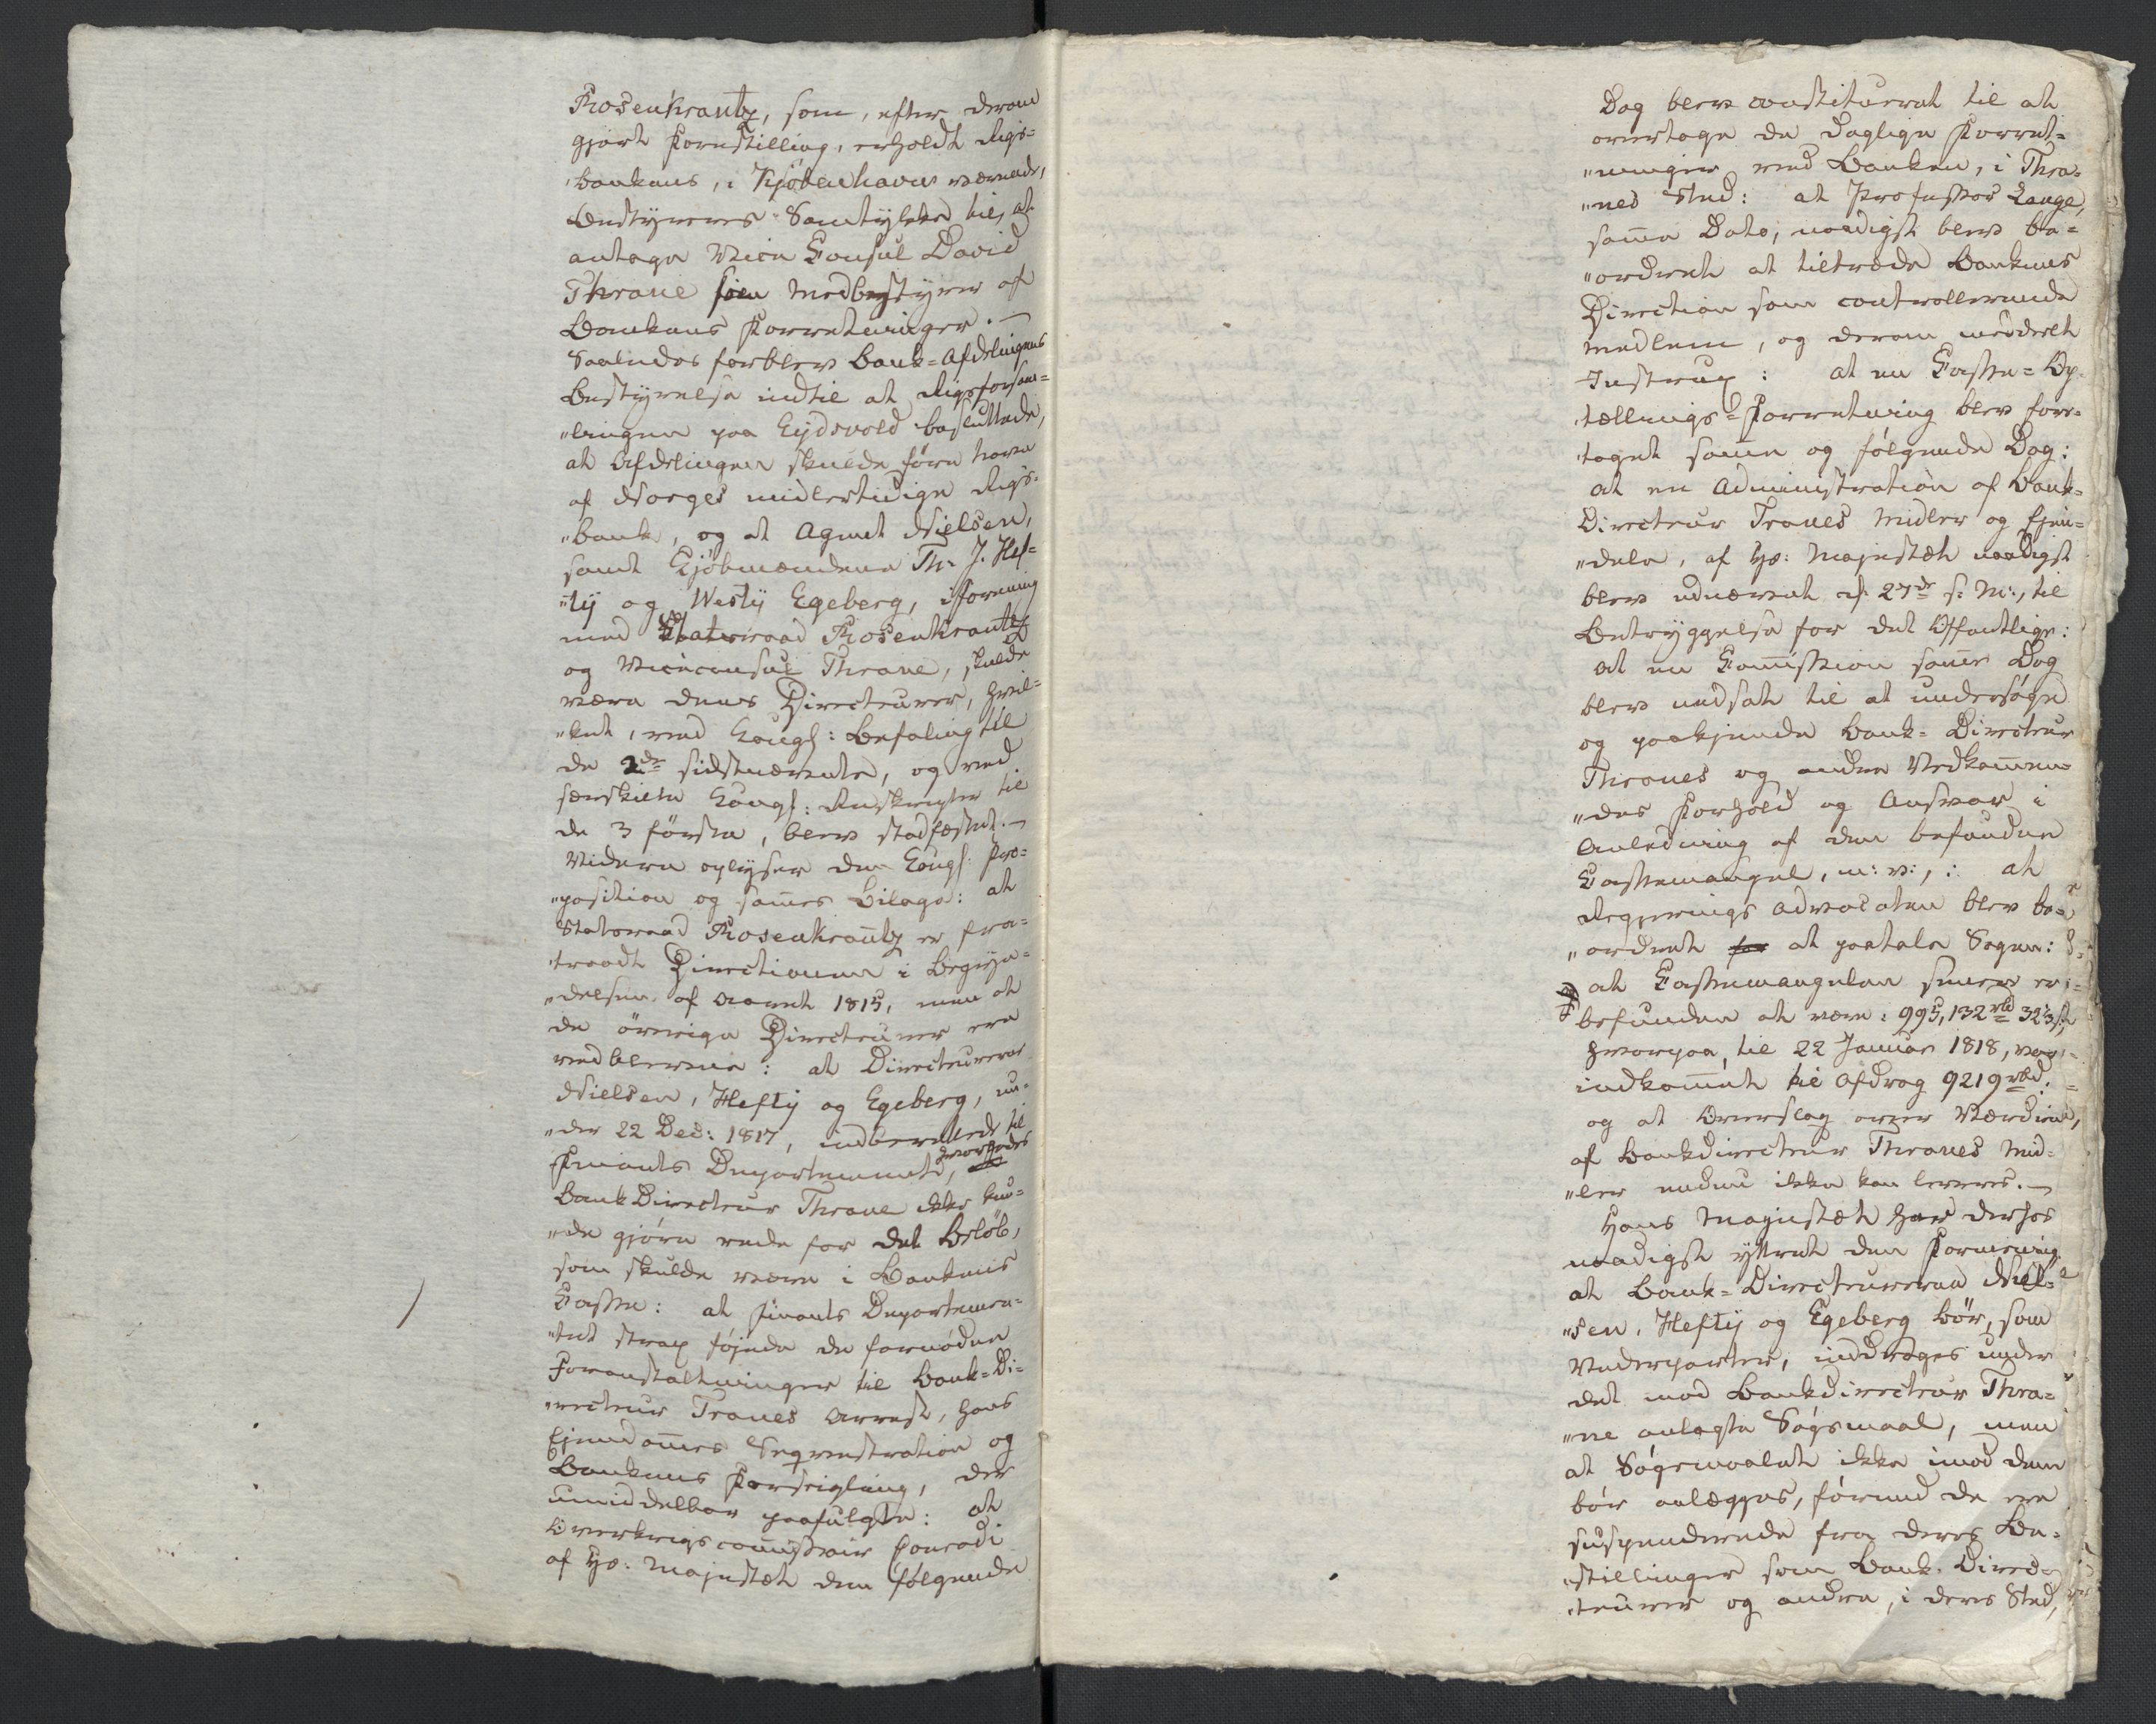 Rosenkrantz, som, efter derom
gjort Forestilling, erholdt Rigs-
„bankens, i Kjöbenhavn værende,
Bestyreres Samtykke til, at
antage Vice Consul David
Thrane som Medbestyrer af
Bankens Forretninger. —
Saaledes forblev Bank-Afdelingens
Bestyrelse indtil at Rigsforsam-
„lingen paa Eydsvold besluttede,
at Afdelingen skulde føre Navn
af Norges midlertidige Rigs-
„bank, og at Agent Nielsen,
samt Kjöbmændene Th. J. Hef-
„ty og Westy Egeberg, i forening
med Statsraad Rosenkrantz
og Viceconsul Thrane, skulde
være denes Directeurer, hvil-
„ket, ved Kongl: Befaling til
de 2de sidstnævnte, og ved
særskilte Kongl: Rescripter til
de 3 første, blev stadfæstet. —
Videre oplyser den Kongl: Pro-
„position og sammes Bilage: at
Statsraad Rosenkrantz er fra-
„traadt Directionen i Begyn-
„delsen af Aaret 1815, men at
de øvrige Directeurer ere
vedblevne: at Directeurerne
Nielsen, Hefty og Egeberg, un-
„der 22 Dec: 1817, indberettede til
Finants Departementet, hvorledes
Bank Directeur Thrane ikke kun-
„de gjøre rede for det Beløb,
som skulde være i Bankens
Casse: at Finants Departemen-
„tet strax føjede de fornødne
Foranstaltninger til Bank-Di-
„recteur Tranes Arrest, hans
Ejendommes Seqvestration og
Bankens Forsegling, der
umiddelbar paafulgte: at
Overkrigscommissair Conradi
af Hs. Majestæt den følgende
Dag blev constitueret til at
overtage de daglige Forret-
„ninger ved Banken, i Thra-
„nes Sted: at Professor Lange,
samme Dato, naadigst blev be-
„ordret at tiltræde Bankens
Direction som controllerende
Medlem, og derom meddelt
Instrux: at en Casse-Op-
„tællings-Forretning blev fore-
„taget samme og følgende Dag:
at en Administration af Bank-
Directeur Tranes Midler og Ejen-
„dele, af Hs. Majestæt naadigst
blev udnævnt d. 27de s. M:, til
Betryggelse for det Offentlige:
at en Commission samme Dag
blev nedsat til at undersøge
og paakjende Bank-Directeur
Thranes og andre Vedkommen-
„des Forhold og Ansvar i
Anledning af den befundne
Cassemangel, m: v:, : at
Regjerings Advocaten blev be-
„ordret for at paatale Sagen:
at Cassemangelen senere er
befunden at være: 995,132 rbd 32⅓ s,
hvorpaa, til 22 Januar 1818, var
indkommet til Afdrag 9219 rbd.
og at Overslag over Værdien,
af Bankdirecteur Thranes Mid-
„ler endnu ikke kan leveres. —
Hans Majestæt har derhos
naadigst yttret den Formening
at Bank-Directeurerne Niel-
„sen, Hefty og Egeberg bör, som
Vederparter, inddrages under
det mod Bankdirecteur Thra-
„ne anlagte Søgsmaal, men
at Søgsmaalet ikke imod dem
bör anlægges, førend de ere
suspenderede fra deres Be-
„stillinger som Bank-Direc-
„teurer og andre, i deres Sted,